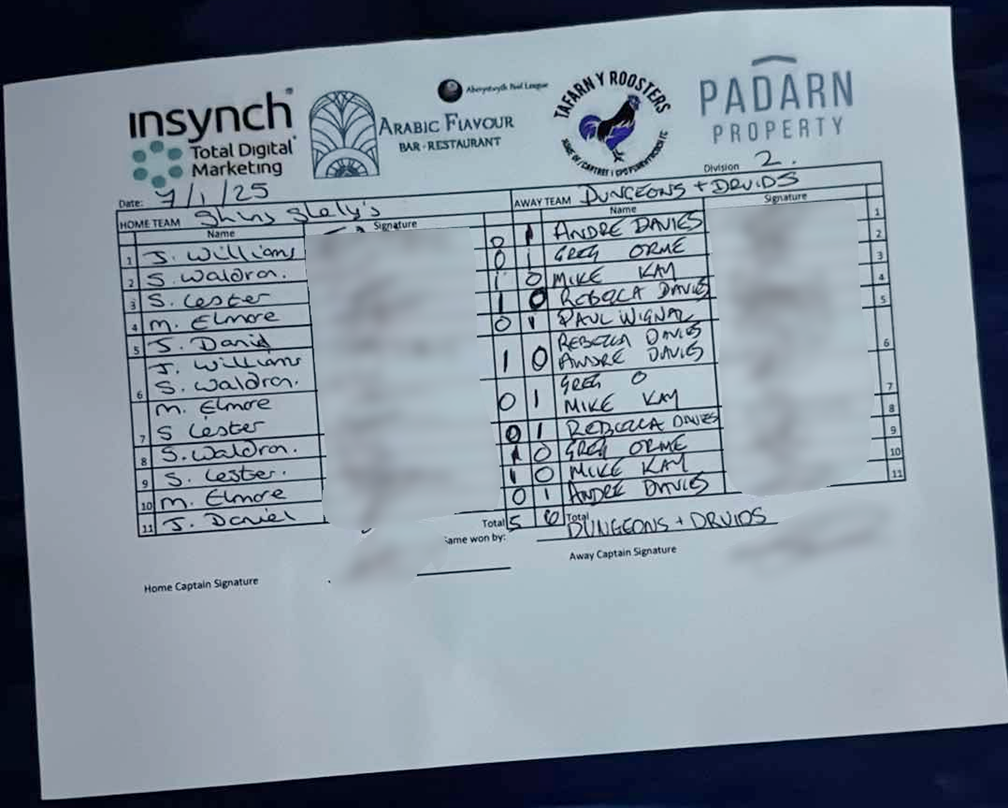 insynch
Total Digital
Marketing
ARABIC FLAVOUR
BAR - RESTAURANT
Aberystwyth Pool League
TAFARN Y ROOSTERS
PADARN
PROPERTY
Date: 7/1/25
Division 2.
HOME TEAM
AWAY TEAM DUNGEONS + DRUIDS
Name Signature Name Signature
1 J. Williams 0 1 ANDRE DAVIES 1
2 S. Waldron. 0 1 GREG ORME 2
3 S. Lester 1 0 MIKE KAY 3
4 M. Elmore 1 0 REBECCA DAVIES 4
5 J. Daniel 0 1 PAUL WIGNAL 5
J. Williams REBECCA DAVIES
6 S. Waldron. 1 0 ANDRE DAVIES 6
M. Elmore GREG O
7 S Lester 0 1 MIKE KAY 7
8 S. Waldron. 0 1 REBECCA DAVIES 8
9 S. Lester. 1 0 GREG ORME 9
10 M. Elmore 1 0 MIKE KAY 10
11 J. Daniel 0 1 ANDRE DAVIES 11
Total 5 6 Total
ame won by: DUNGEONS + DRUIDS
Home Captain Signature
Away Captain Signature